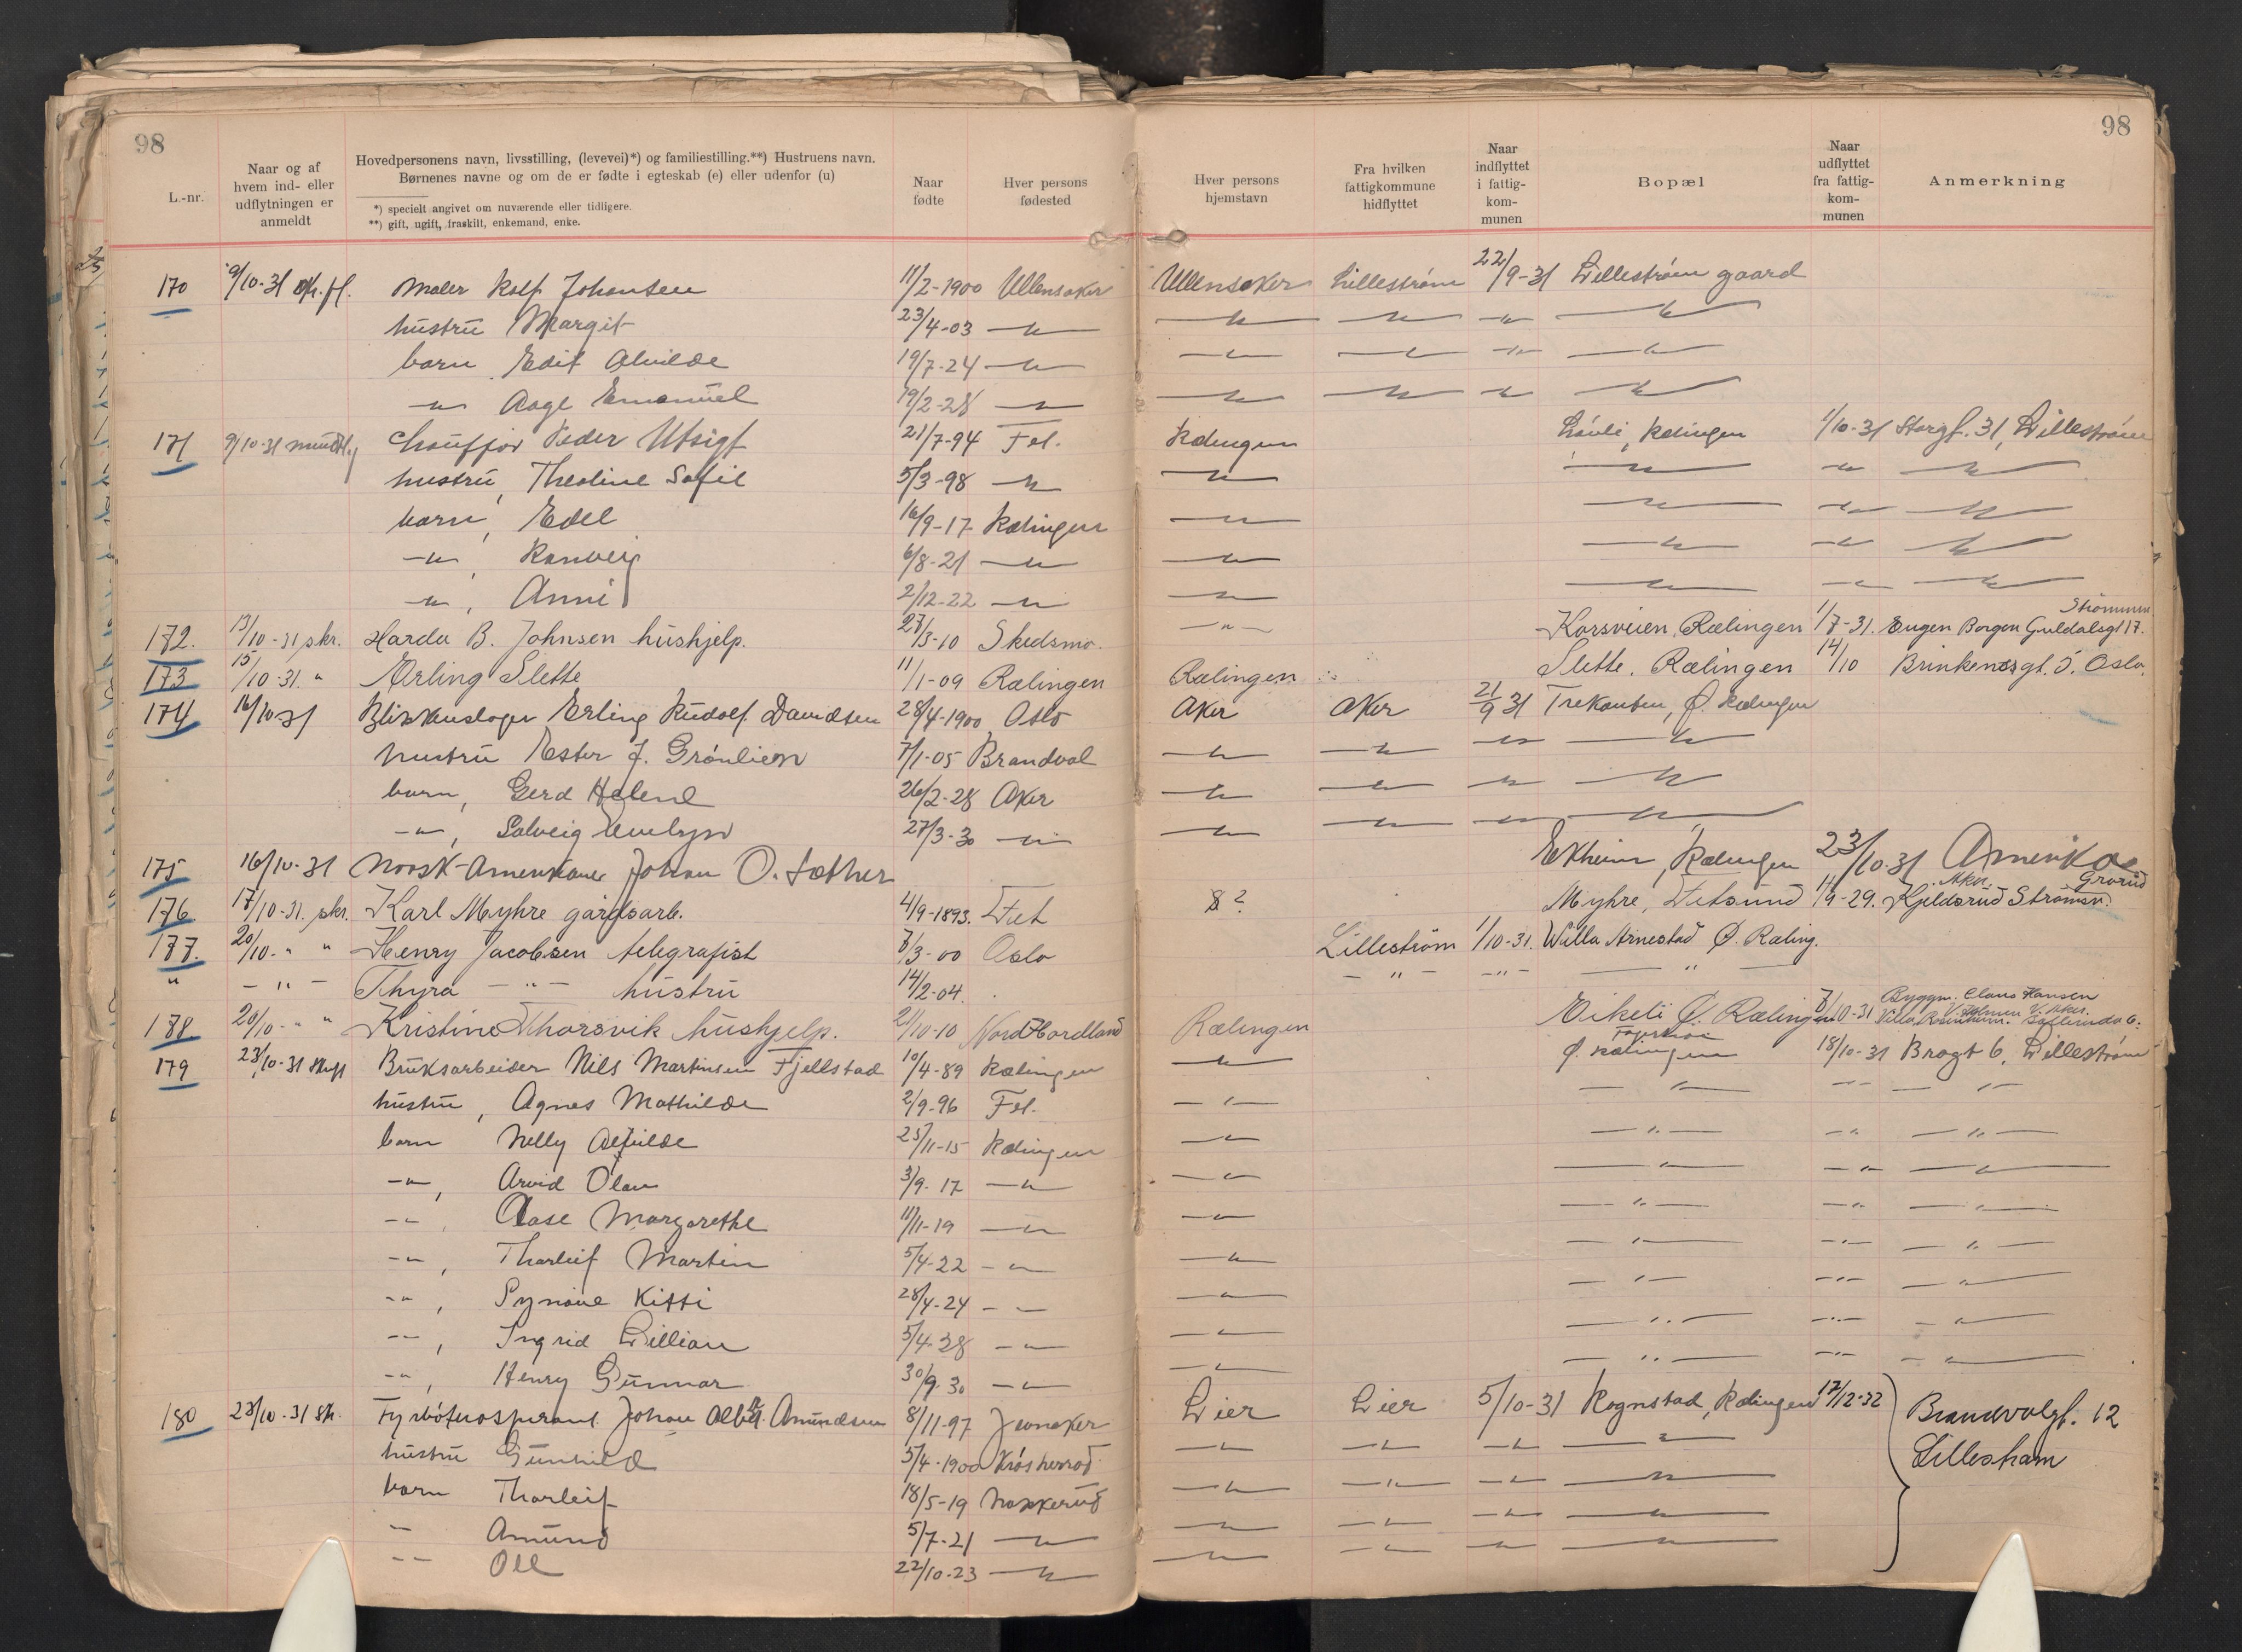 98
98
L.-nr.
Naar og af hvem ind- eller udflytningen er anmeldt
Hovedpersonens navn, livsstilling, (levevei)*) og familiestilling.**) Hustruens navn.
Børnenes navne og om de er fødte i egteskab (e) eller udenfor (u)
*) specielt angivet om nuværende eller tidligere.
**) gift, ugift, fraskilt, enkemand, enke.
Naar fødte
Hver persons fødested
Hver persons hjemstavn
Fra hvilken fattigkommune hidflyttet
Naar indflyttet i fattig-kom-munen
Bopæl
Naar udflyttet fra fattig-kom-munen
Anmerkning
170 9/10-31 Maler Rolf Johansen 11/2-1900 Ullensaker Ullensaker Lillestrøm 22/9-31 Lillestrøm gaard
hustru Margit 23/4-03 -"- -"- -"- -"- -"-
barn Edit Alvilde 19/7-24 -"- -"- -"- -"- -"-
-"- Aage Emanuel 19/2-28 -"- -"- -"- -"- -"-
171 9/10-31 mundtlig Chauffør Peder Utsigt 21/7-94 Fet. Rælingen Løvli, Rælingen 1/10-31 Storgt. 31, Lillestrøm
hustru, Theoline Sofie 5/3-98 -"- -"- -"- -"- -"-
barn, Edel 16/9-17 Rælingen -"- -"- -"- -"-
-"-, Ranveig 6/8-21 -"- -"- -"- -"- -"-
-"-, Anni 2/12-22 -"- -"- -"- -"- -"-
172. 13/10-31 skr. Harda B. Johnsen hushjelp. 27/3-10 Skedsmo. -"- Korsveien, Rælingen 1/7-31. Eugen Borgen Guldalsgt 17. Strømmen
173 15/10-31. " Erling Slette 11/1-09 Rælingen Rælingen Slette. Rælingen 14/10 Brinkensgt. 5. Oslo.
174 16/10-31 Blikkenslager Erling Rudolf Davidsen 28/4-1900 Oslo Aker Aker 21/9 31 Trekanten, Ø. Rælingen
hustru Ester J. Grønlien 7/1-05 Brandval -"- -"- -"- -"-
barn, Gerd Helene 26/2-28 Aker -"- -"- -"- -"-
-"-, Solveig Evelyn 27/3-30 -"- -"- -"- -"- -"-
175 16/10-31 Norsk-Amerikaner Johan O. Sæther Ekheim, Rælingen 23/10-31 Amerika
176 17/10-31. skr. Karl Myhre gårdsarb. 4/9-1893. Fet ? Myhre, Fetsund 1/9-29. Kjeldsrud Strømsv. Aker. Grorud
177. 20/10- " " Henry Jacobsen telegrafist 8/3-00 Oslo Lillestrøm 1/10-31. Willa Arnestad Ø. Ræling.
" - " - Thyra - " - hustru 14/2-04. - " - - " - "
178 20/10- " " Kristine Thorsvik hushjelp. 21/10-10 Nord Hordland Rælingen Eikeli Ø. Rælingen 8/10-31 Byggm. Claus Hansen
179 23/10-31 Bruksarbeider Nils Martinsen Fjellstad 10/4-89 Rælingen -"- Ø. Rælingen 18/10-31 Brogt 6, Lillestrøm
hustru, Agnes Mathilde 2/9-96 Fet. -"- -"- -"- -"-
barn Nelly Alfhilde 25/11-15 Rælingen -"- -"- -"- -"-
-"-, Arvid Olav 3/9-17 -"- -"- -"- -"- -"-
-"-, Aase Margarethe 11/11-19 -"- -"- -"- -"- -"-
-"-, Thorleif Martin 5/4-22 -"- -"- -"- -"- -"-
-"-, Synøve Kitti 28/4-24 -"- -"- -"- -"- -"-
-"-, Ingrid Lillian 5/4-28 -"- -"- -"- -"- -"-
-"-, Henry Gunnar 30/9-30 -"- -"- -"- -"- -"-
180 23/10-31 Fyrbøteraspirant Johan Albert Amundsen 8/11-97 Jevnaker Lier Lier 5/10-31 Rognstad, Rælingen 17/12-32 Brandvalgt. 12
hustru Gunhild 5/4-1900 Krødsherrod -"- -"- -"- -"- Lillestrøm
barn Thorleif 18/5-19 Nakkerud -"- -"- -"- -"-
-"- Amund 5/7-21 -"- -"- -"- -"- -"-
-"- Ole 22/10-23 -"- -"- -"- -"- -"-